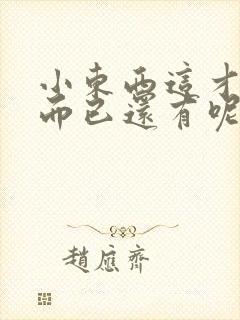 小東西這才
而已還有呢
趙應齊